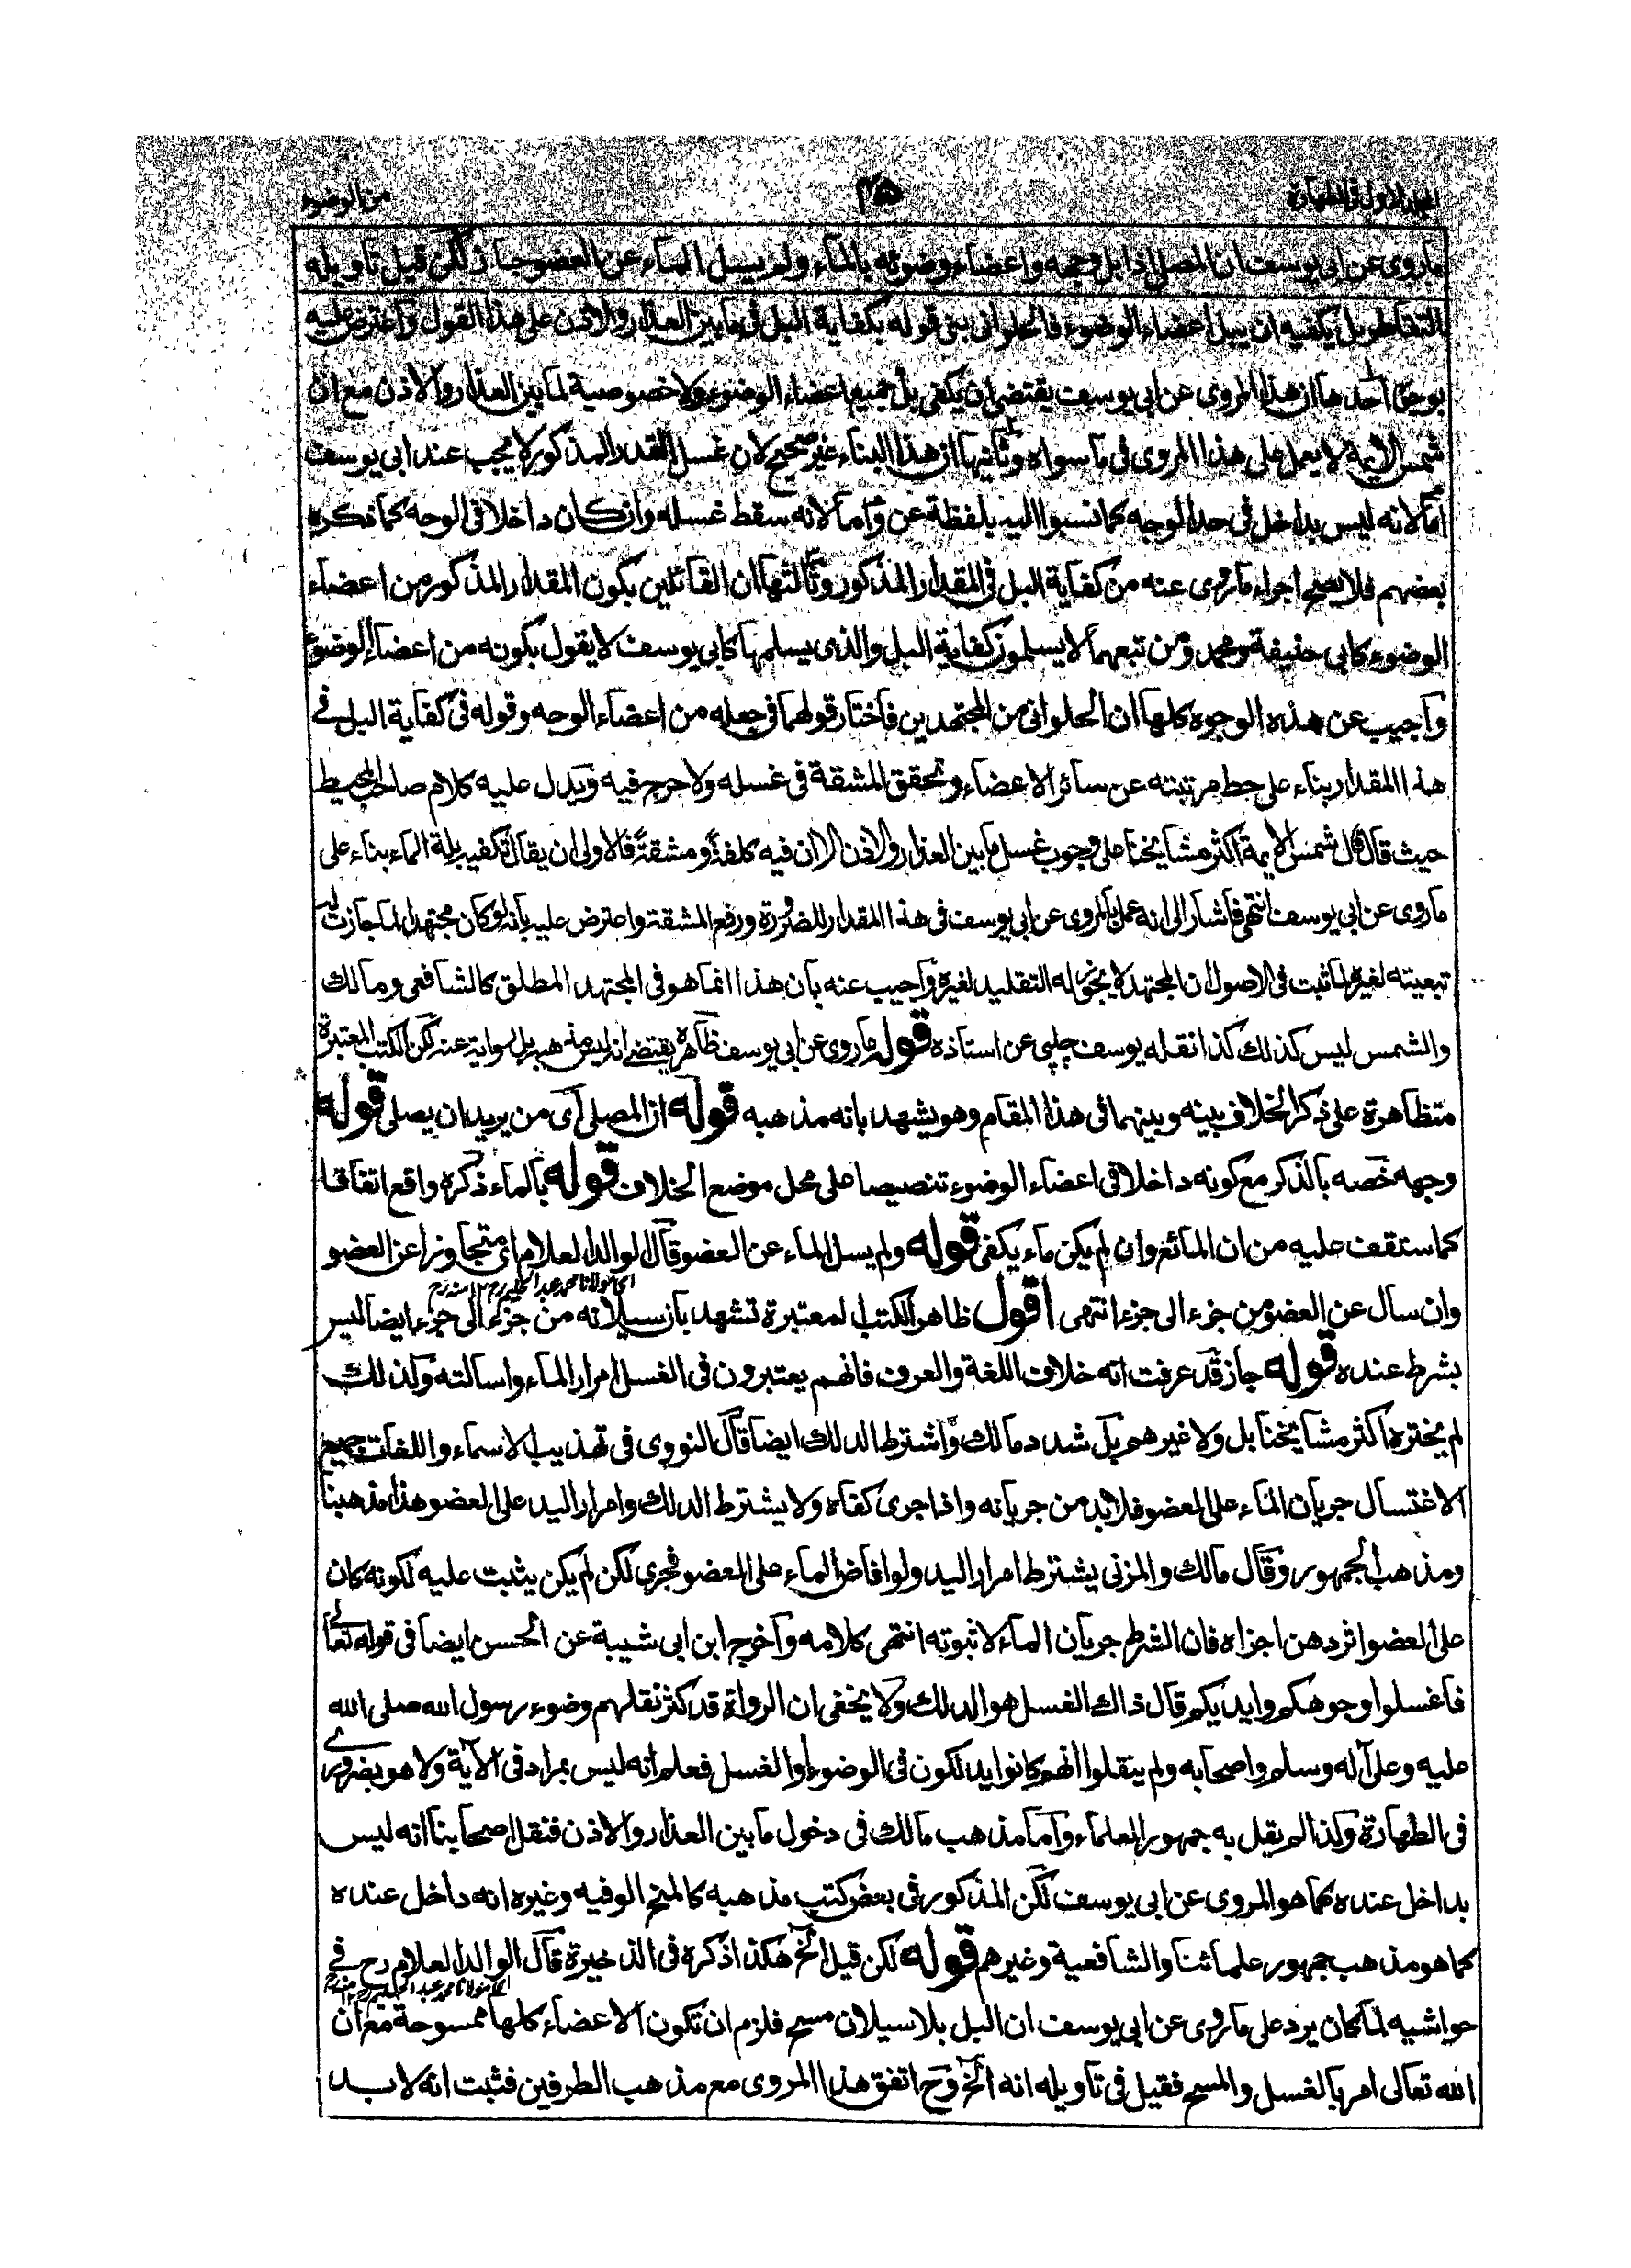 المجلد الاول فى الطهارة ٢٥ من الوضوء
ما روى عن ابى يوسف ان المصلى اذا بل وجهه واعضاء وضوئه بالماء ولم يسل الماء عن العضو جاز لكن قيل تاويله
التقاطر بل يكفيه ان يبل اعضاء الوضوء فالحلوانى بنى قوله بكفاية البل فى ما بين العذار والاذن على هذا القول واعترض عليه
بوجوه احدها ان هذا المروى عن ابى يوسف يقتضى ان يكفى بل جميع اعضاء الوضوء ولا خصوصية لما بين العذار والاذن مع ان
شمس الائمة لا يعمل على هذا المروى فى ما سواه وثانيها ان هذا البناء غير صحيح لان غسل القدر المذكور لا يجب عند ابى يوسف
اما لانه ليس بداخل فى حد الوجه كما نسبوا اليه بلفظة عن واما لانه سقط غسله وان كان داخلا فى الوجه كما ذكره
بعضهم فلا يصح اجراء ما روى عنه من كفاية البل فى المقدار المذكور وثالثها ان القائلين بكون المقدار المذكور من اعضاء
الوضوء كابى حنيفة ومحمد ومن تبعهما لا يسلمون كفاية البل والذى يسلمها كابى يوسف لا يقول بكونه من اعضاء الوضوء
واجيب عن هذه الوجوه كلها ان الحلوانى من المجتهدين فاختار قولهما فى جعله من اعضاء الوجه وقوله فى كفاية البل فى
هذا المقدار بناء على حط مرتبته عن سائر الاعضاء وتحقق المشقة فى غسله ولا حرج فيه ويدل عليه كلام صاحب المحيط
حيث قال قال شمس الائمة اكثر مشايخنا على وجوب غسل ما بين العذار والاذن الا ان فيه كلفة ومشقة فالاولى ان يقال تكفيه بلة الماء بناء على
ما روى عن ابى يوسف انتهى فاشار الى انه عمل بالمروى عن ابى يوسف فى هذا المقدار للضرورة ورفع المشقة واعترض عليه بانه لو كان مجتهدا لما جازت له
تبعيته لغيره لما ثبت فى الاصول ان المجتهد لا يجوز له التقليد لغيره واجيب عنه بان هذا انما هو فى المجتهد المطلق كالشافعى ومالك
والشمس ليس كذلك كذا نقله يوسف چلپى عن استاذه قوله ما روى عن ابى يوسف ظاهره يقتضى انه ليس مذهبه بل رواية عنه لكن الكتب المعتبرة
متظاهرة على ذكر الخلاف بينه وبينهما فى هذا المقام وهو يشهد بانه مذهبه قوله ان المصلى اى من يريد ان يصلى قوله
وجهه خصه بالذكر مع كونه داخلا فى اعضاء الوضوء تنصيصا على محل موضع الخلاف قوله بالماء ذكره واقع اتفاقا
كما ستقف عليه من ان المائع وان لم يكن ماء يكفى قوله ولم يسل الماء عن العضو قال الوالد العلام اى متجاوزا عن العضو
اى مولانا محمد عبد الحليم رح ١٢ منه رح
وان سال عن العضو من جزء الى جزء انتهى اقول ظاهر الكتب المعتبرة تشهد بان سيلانه من جزء الى جزء ايضا ليس
بشرط عنده قوله جاز قد عرفت انه خلاف اللغة والعرف فانهم يعتبرون فى الغسل امرار الماء واسالته ولذلك
لم يختره اكثر مشايخنا بل ولا غيرهم بل شدد مالك واشترط الدلك ايضا قال النووى فى تهذيب الاسماء واللغات جميع
الاغتسال جريان الماء على العضو فلا بد من جريانه واذا جرى كفاه ولا يشترط الدلك وامرار اليد على العضو هذا مذهبنا
ومذهب الجمهور وقال مالك والمزنى يشترط امرار اليد ولو افاض الماء على العضو فجرى لكن لم يكن يثبت عليه لكونه كان
على العضو اثر دهن اجزاه فان الشرط جريان الماء لا ثبوته انتهى كلامه واخرج ابن ابى شيبة عن الحسن ايضا فى قوله تعالى
فاغسلوا وجوهكم وايديكم قال ذاك الغسل هو الدلك ولا يخفى ان الرواة قد كثر نقلهم وضوء رسول الله صلى الله
عليه وعلى آله وسلم واصحابه ولم ينقلوا انهم كانوا يدلكون فى الوضوء او الغسل فعلم انه ليس بمراد فى الآية ولا هو بضرورى
فى الطهارة وكذا لم يقل به جمهور العلماء واما مذهب مالك فى دخول ما بين العذار والاذن فنقل اصحابنا انه ليس
بداخل عنده كما هو المروى عن ابى يوسف لكن المذكور فى بعض كتب مذهبه كالمنح الوفيه وغيره انه داخل عنده
كما هو مذهب جمهور علمائنا والشافعية وغيرهم قوله لكن قيل الخ هكذا ذكره فى الذخيرة قال الوالد العلام رح فى
اى مولانا محمد عبد الحليم رح ١٢ منه رح
حواشيه لما كان يرد على ما روى عن ابى يوسف ان البل بلا سيلان مسح فلزم ان تكون الاعضاء كلها ممسوحة مع ان
الله تعالى امر بالغسل والمسح فقيل فى تاويله انه الخ وح اتفق هذا المروى مع مذهب الطرفين فثبت انه لابد